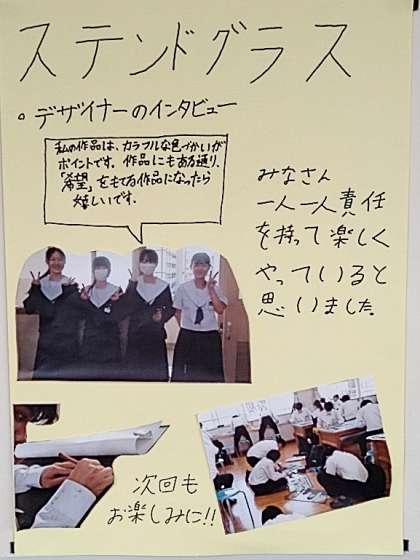 ステンドグラス
○デザイナーのインタビュー
私の作品は、カラフルな色づかいが
ポイントです。作品にもある通り、
「希望」をもてる作品になったら
嬉しいです。
みなさん
一人一人責任
を持って楽しく
やっていると
思いました。
次回も
お楽しみに!!